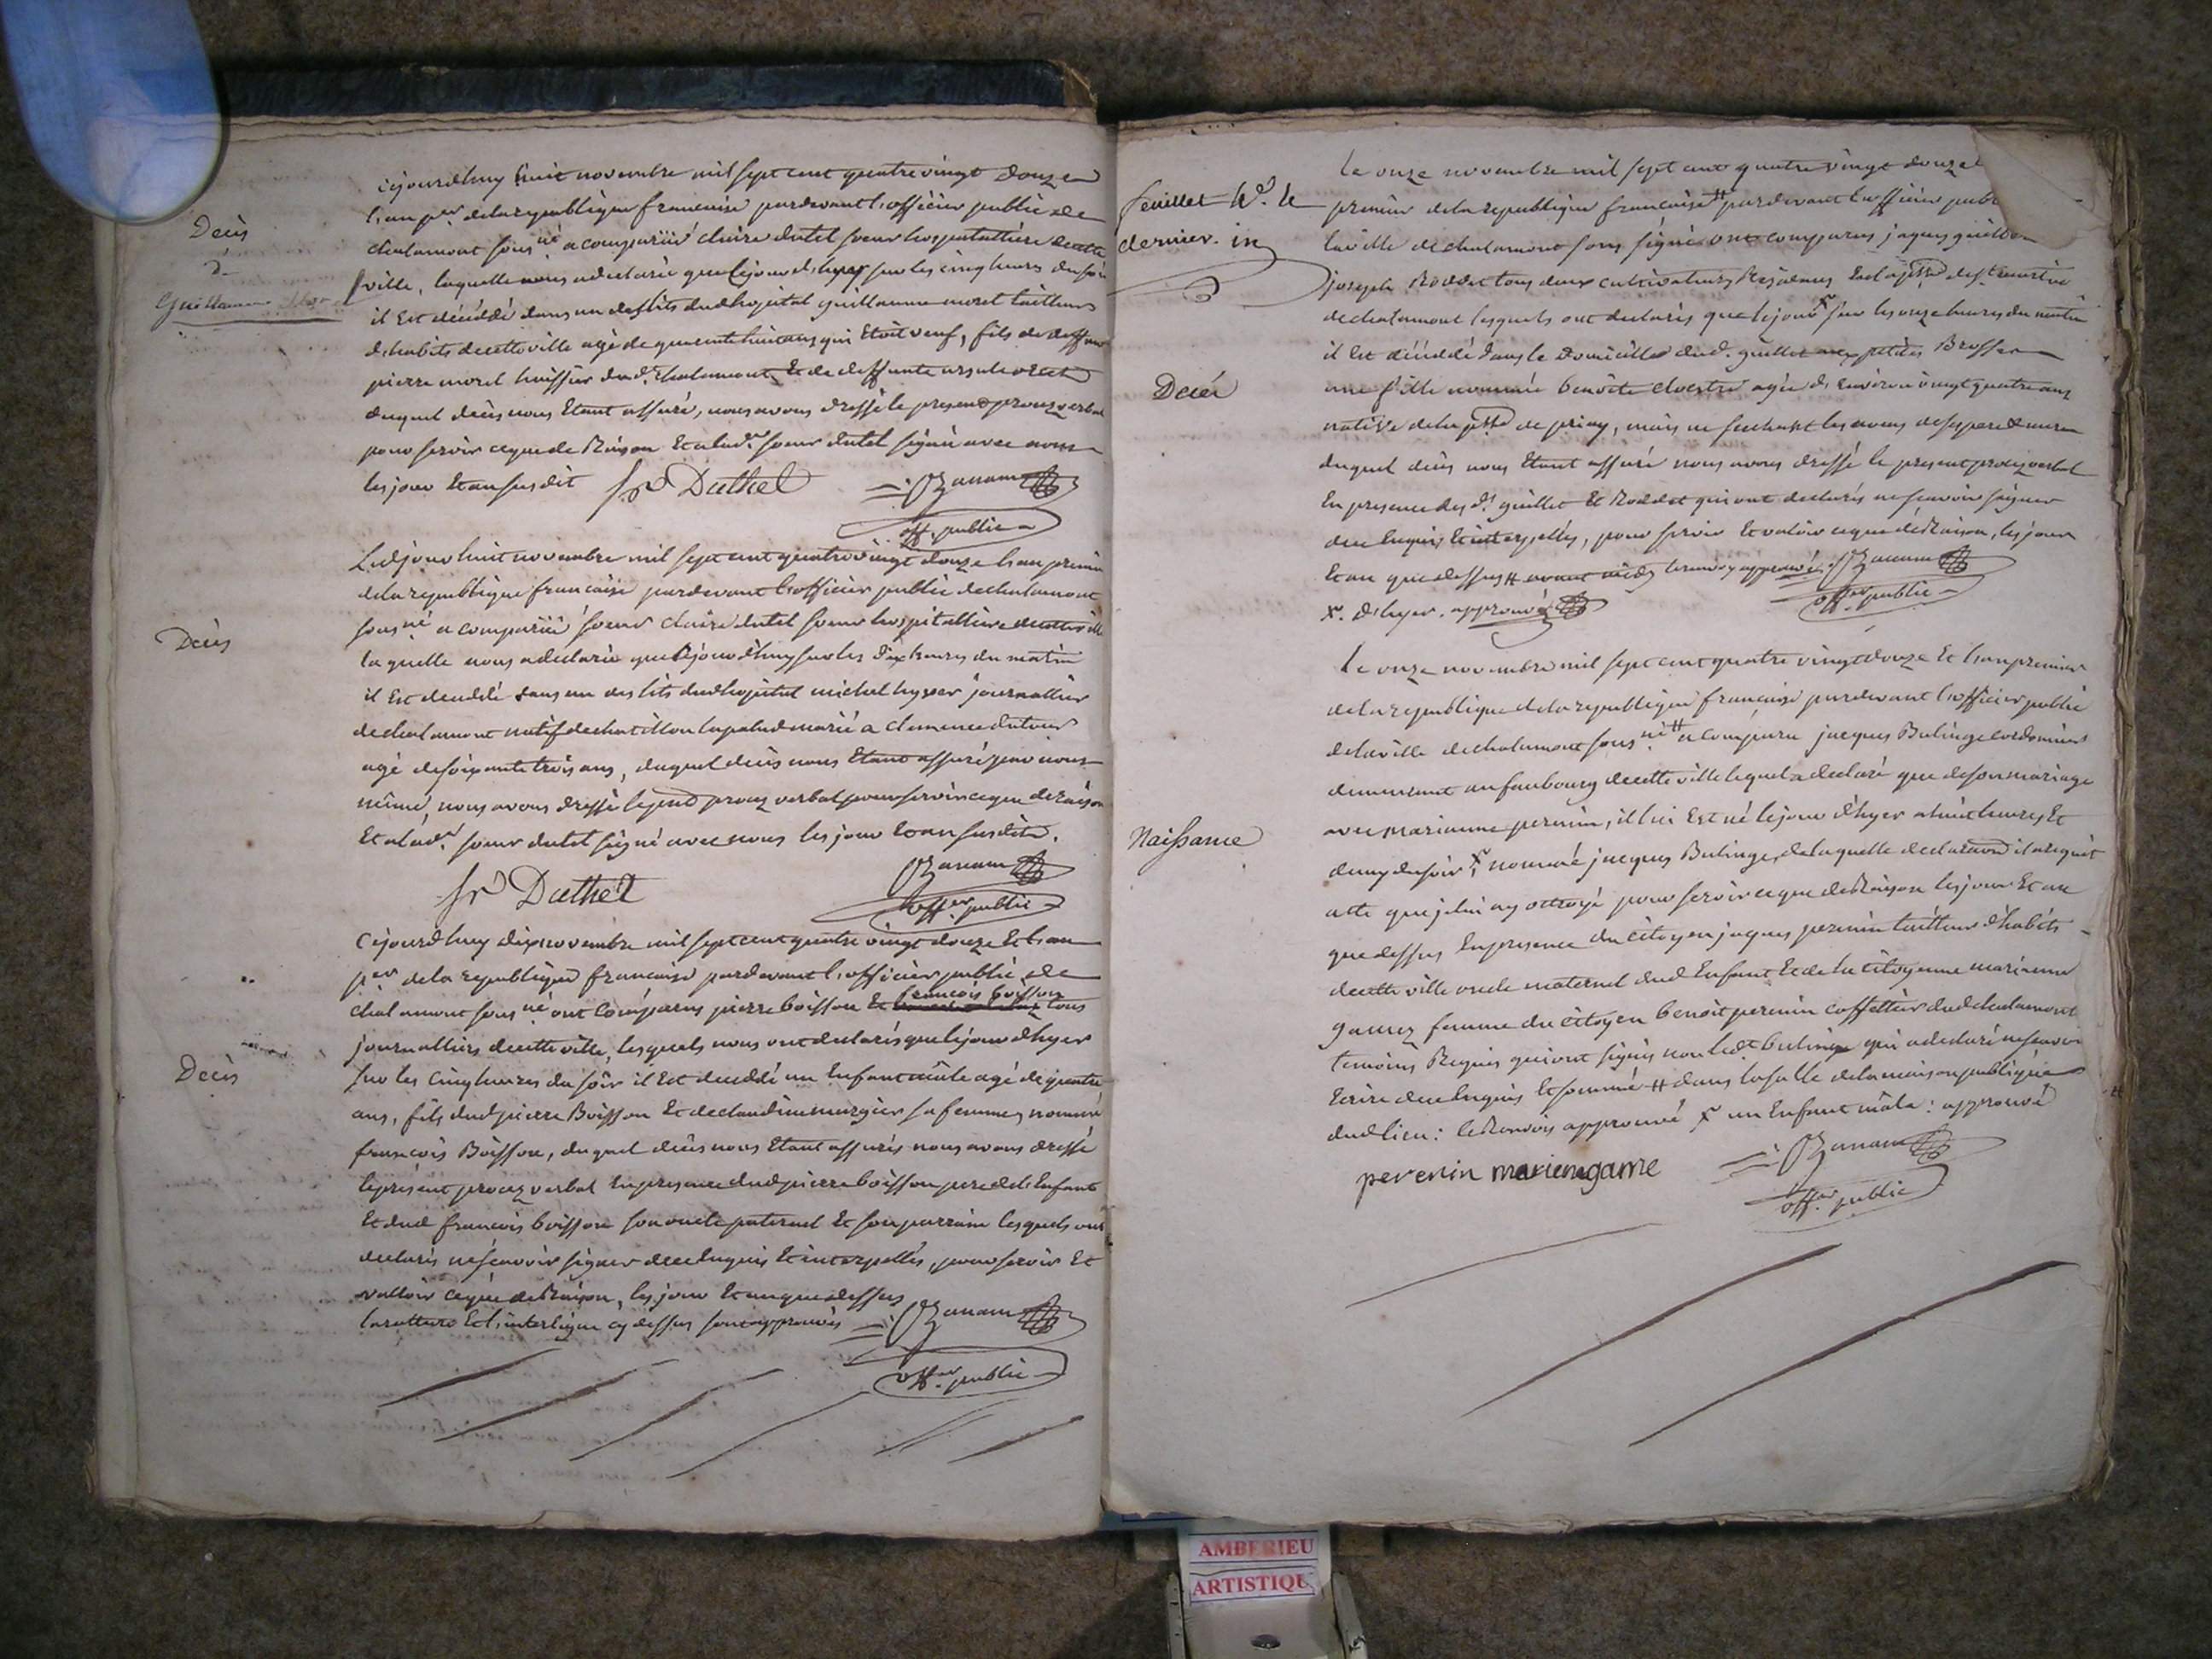 Decès
d
Guillaume
cejourdhuy huit novembre mil sept cent quatre vingt douze
l'an per de la republique francaise pardevant l'officier public de
chalamont sousné a compariié claire dutel soeur hospitalliere de cette
ville, laquelle nous a declarée que lejour d'hyer sur les cinq heures du soir
il Est décédé dans un des lits dud hopital guillaume morel tailleur
d'habits de cette ville agé de quarente huit ans qui Etoit veuf, fils de deffunt
pierre morel huissier dud. chalamont, Et de deffunte ursule
duquel décès nous Etant assuré, nous avons dressé le present procez verbal
pour servir ce que de Raison Et a lad. soeur dutel signé avec nous
les jour Et an susdit Sr Duthel Ozanam
off. public
Decès
Ledjour huit novembre mil sept cent quatre vingt douze l'an premier
de la republique francaise pardevant l'officier public de chalamont
sousné a compariié soeur claire dutel soeur hospitalliere de cette ville
laquelle nous a declarée que lejour d'huy sur les dix heures du matin
il Est decedé dans un des lits dud hopital michel hyver journallier
de chalamont natif de chatillon lapalud marié a clemence dutour
agé de soixante trois ans, duquel décès nous Etant assuré par nous
même, nous avons dressé le pnt procez verbal pour servir ce que de raison
Et a lad. soeur dutel signé avec nous les jour Et an susdits.
Sr Duthel Ozanam
offer public
Decès
Cejourdhuy dix novembre mil sept cent quatre vingt douze Et l'an
per de la republique francaise pardevant l'officier public de
francois boisson
chalamont sousné ont comparus pierre boisson Et tous
journalliers de cette ville, lesquels nous ont declarés que lejour d'hyer
sur les Cinq heures du soir il Est decedé un Enfant mâle agé de quatre
ans, fils dud pierre Boisson Et de claudine mergier sa femme, nommé
francois Boisson, duquel décès nous Etant assurés nous avons dressé
le présent procez verbal En presence dud pierre boisson pere de l'Enfant
Et dud francois boisson son oncle paternel Et son parrain lesquels ont
declarés ne scavoir signer de ce Enquis Et interpellés, pour servir Et
valloir ce que de Raison, les jour Et an que dessus
la rature Et l'interligne cy dessus sont approuvés Ozanam
offer public
feuillet 4e. Et
dernier.
Le onze novembre mil sept cent quatre vingt douze
premier de la republique francaise # pardevant l'officier publ
la ville de chalamont sous signé ont comparus jaques guillet
joseph Roddet tous deux cultivateurs Residens En la psse de st martin
de chalamont lesquels ont declarés que lejour x sur les onze heures du matin
il Est décédé dans le domicille dud. guillet aux petites Brosses
Decès
une fille nommée benoite clvestre agée d'Environ vingt quatre ans
native de la psse de priay, mais ne sachant les noms de ses pere & mere
duquel décès nous Etant assuré nous avons dressé le present procez verbal
En presence des ds guillet Et Roddet qui ont declarés ne scavoir signer
de ce Enquis Et interpellés, pour servir Et valoir ce que de Raison, les jour
Et an que dessus # avant midy le renvoy approuvé. Ozanam
x. d'hyer. approuvé offer public
Le onze novembre mil sept cent quatre vingt douze Et l'an premier
de la republique de la republique francaise pardevant l'officier public
de la ville de chalamont sousné # a comparu jacques Bulinge cordonnier
demeurant au faubourg de cette ville lequel a declaré que de son mariage
Naissance
avec marianne perenin, il lui Est né lejour d'hyer a huit heures Et
demy du soir x nommé jacques Bulinge, de laquelle declaration il a requit
acte que je lui ay octroyé pour servir ce que de Raison les jour Et an
que dessus En presence du citoyen jaques perenin tailleur d'habits
de cette ville oncle maternel dud Enfant Et de la citoyenne marianne
femme du citoyen benoit perenin caffettier dud chalamont
temoins Requis qui ont signés non led bulinge qui a declaré ne scavoir
Ecrire de ce Enquis Et sommé # dans la salle de la maison publique
dud lieu: le Renvois approuvé x un Enfant mâle: approuvé
perenin marienegarne Ozanam
offer public
AMBERIEU
ARTISTIQU